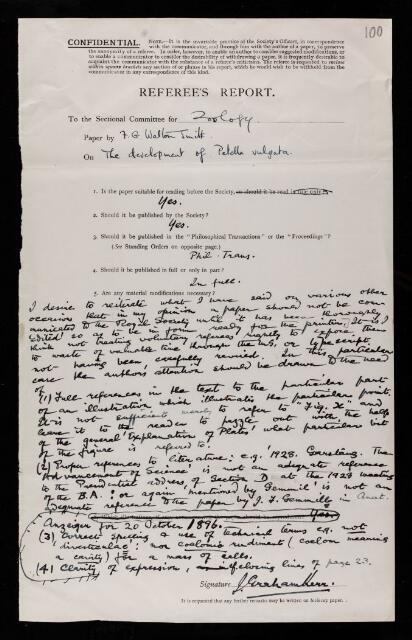 100
CONFIDENTIAL. NOTE.—It is the invariable practice of the Society's Officers, in correspondence
with the communicator, and through him with the author of a paper, to preserve
the anonymity of a referee. In order, however, to enable an author to consider suggested modifications, or
to enable a communicator to consider the desirability of withdrawing a paper, it is frequently desirable to
acquaint the communicator with the substance of a referee's criticisms. The referee is requested to enclose
within square brackets any section of or phrase in his report, which he would wish to be withheld from the
communicator in any correspondence of this kind.
REFEREE'S REPORT.
To the Sectional Committee for Zoology.
Paper by F. G. Walton Smith
On The development of Patella vulgata.
1. Is the paper suitable for reading before the Society, or should it be read in title only?
Yes.
2. Should it be published by the Society?
Yes.
3. Should it be published in the "Philosophical Transactions" or the "Proceedings"?
(See Standing Orders on opposite page.)
Phil. Trans.
4. Should it be published in full or only in part?
In full.
5. Are any material modifications necessary?
I desire to reiterate what I have said on various other
occasions that in my opinion a paper should not be com-
municated to the Royal Society until it has been thoroughly
edited so as to be in form ready for the printer. It is I
think not treating voluntary referees fairly to expose them
to waste of valuable time through the MS. or typescript
not having been carefully revised. In this particular
case the author's attention should be drawn to the need
of
(1) Full references in the text to the particular part
of an illustration which illustrates the particular point.
It is not sufficient merely to refer to "Fig. X" and
leave it to the reader to puzzle out with the help
of the general 'Explanation of Plates' what particular bit
of the figure is referred to.
(2) Proper references to literature: e.g. '1928. Garstang. The
Advancement of Science' is not an adequate reference
to the Presidential address of Section D at the 1928 meeting
of the B.A.: or again mentioned by Gemmil' is not an
adequate reference to the paper by J. F. Gemmill in Anat.
Yes.
Anzeiger for 20 October 1896.
(3) Correct spelling & use of technical terms e.g. not
'diverticulae': nor coelomic rudiment (coelom meaning
a cavity) for a mass of cells.
(4) Clarity of expression, lines of page 23.
Signature J. Graham Kerr.
It is requested that any further remarks may be written on Sectional paper.